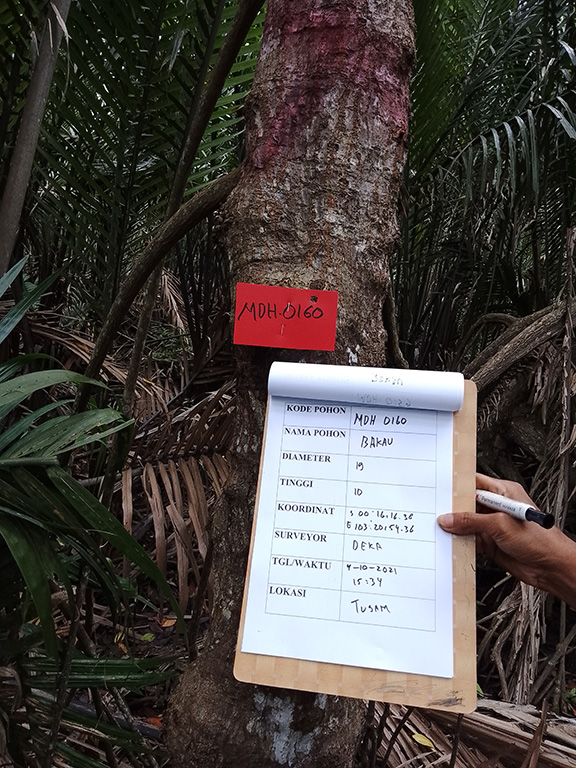 MDH.0160
KODE POHON MDH 0160
NAMA POHON BAKAU
DIAMETER 19
TINGGI 10
KOORDINAT S 00:16.16.36
E 103:20:54.36
SURVEYOR DEKA
TGL/WAKTU 4-10-2021
15:34
LOKASI TUSAM